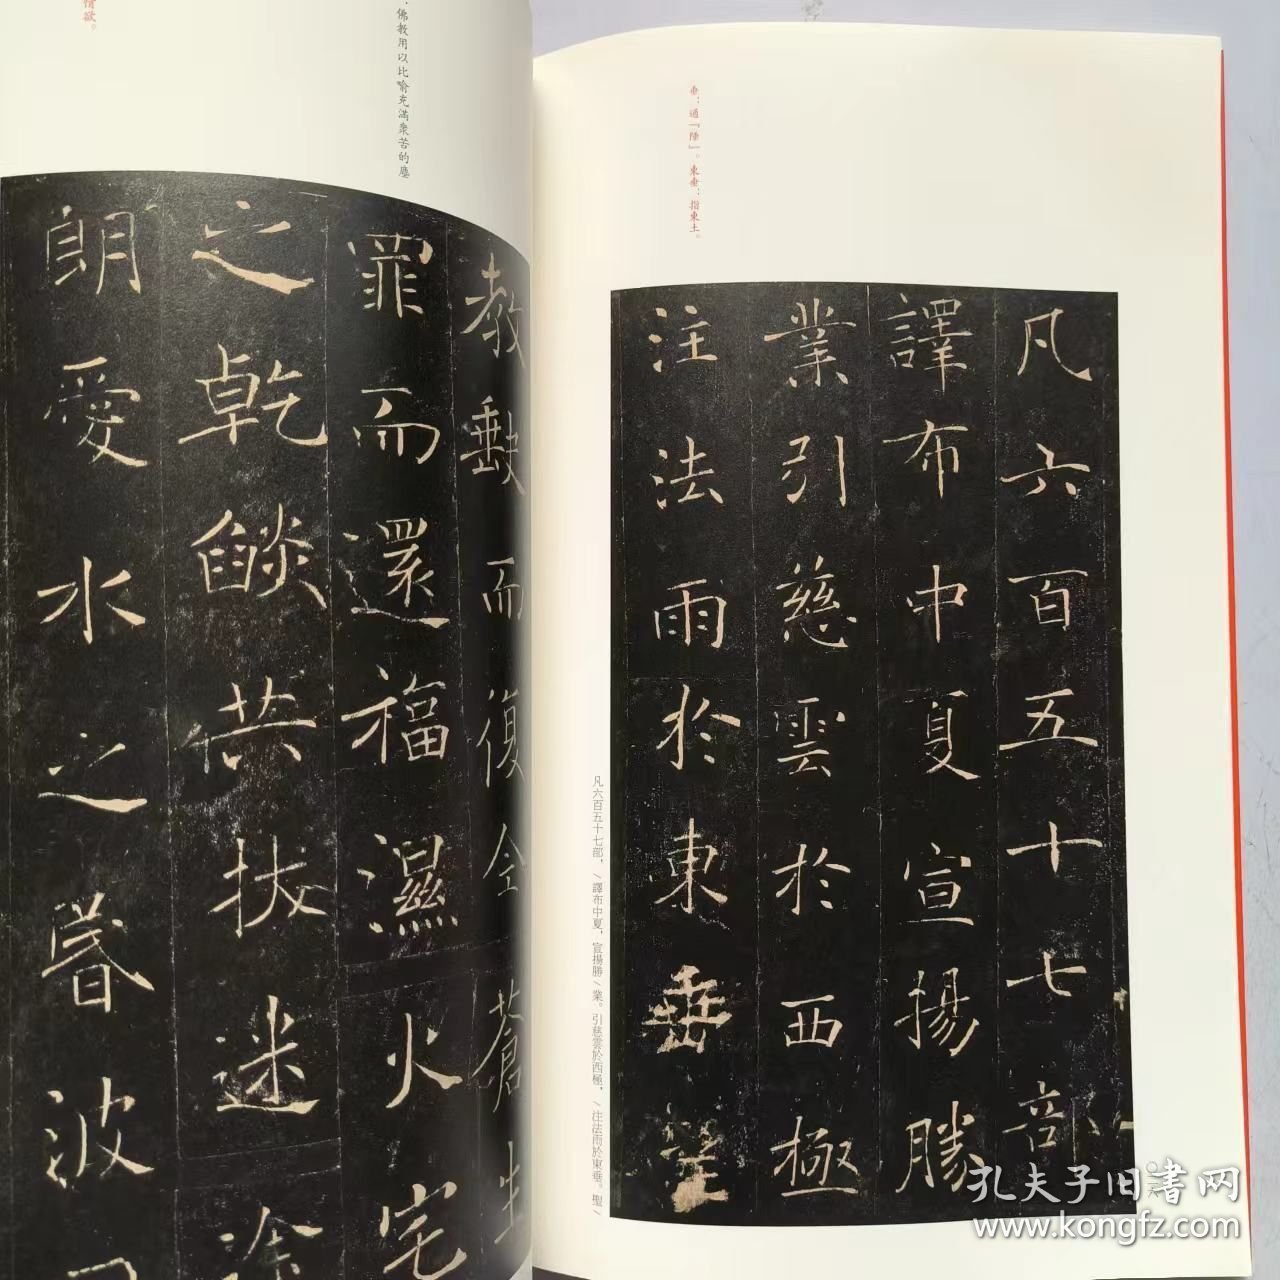 垂：通『陲』。東垂：指東土。
凡六百五十七部
譯布中夏宣揚勝
業引慈雲於西極
注法雨於東垂聖
凡六百五十七部，/譯布中夏，宣揚勝/業。引慈雲於西極，/注法雨於東垂。聖/
佛教用以比喻充滿衆苦的塵
情欲。
教缺而復全蒼生
罪而還福濕火宅
之乾燄共拔迷途
朗愛水之昏波
孔夫子旧书网
www.kongfz.com